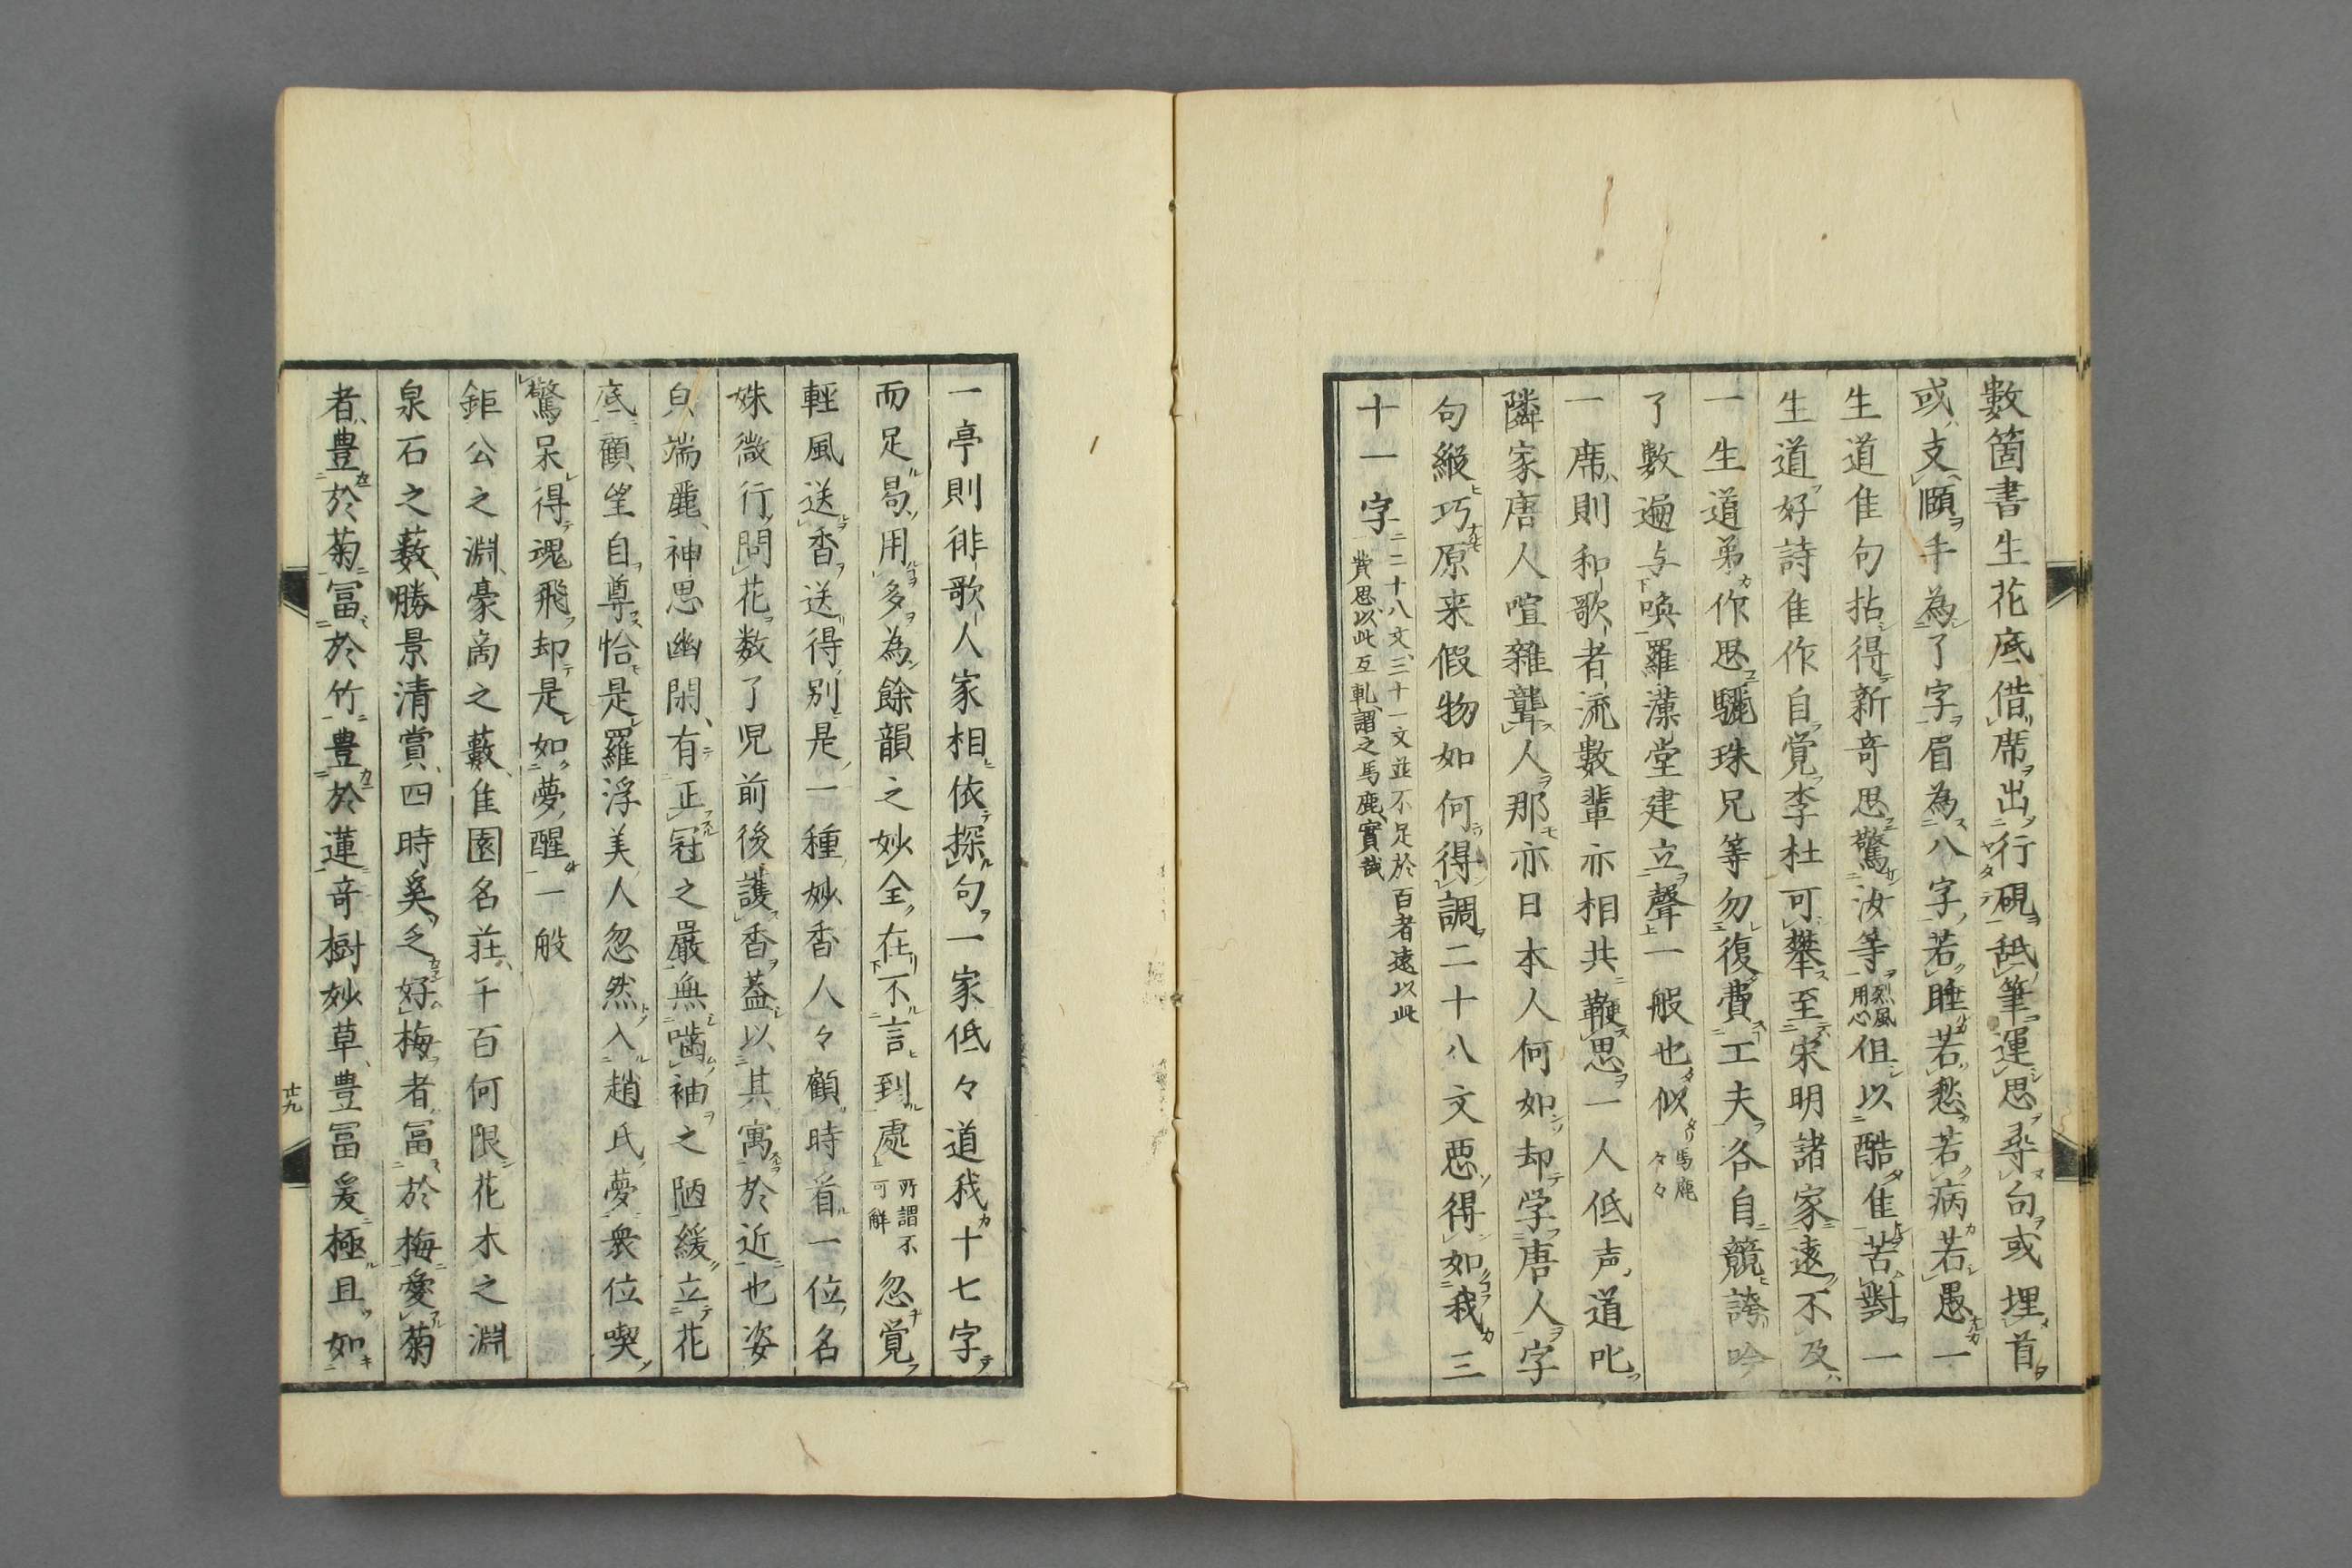 數箇書生花底借席出行硯舐筆運思尋句或埋首
或支頤手為了字眉為八字若睡若愁若病若愚一
生道佳句拈得新奇思驚汝等烈風用心但以酷佳苦對一
生道好詩佳作自覚李杜可攀至宋明諸家遠不及
一生道弟作思驪珠兄等勿復費工夫各自競誇吟
了數遍与喚羅漢堂建立聲一般也似馬鹿々々
一席則和歌者流數輩亦相共鞭思一人低声道叱
隣家唐人喧雜聾人那亦日本人何如却学唐人字
句緞巧原来假物如何得調二十八文悪得如我三
十一字二十八文三十一文並不足於百者遠以此費思以此互軋謂之馬鹿實哉
一亭則徘歌人家相依探句一家低々道我十七字
而足曷用多為餘韻之妙全在不言到處所謂不可解忽覚
輕風送香送得別是一種妙香人々顧時首一位名
姝微行問花数了児前後護香蓋以其寓於近也姿
皃端麗神思幽閑有正冠之嚴無嚙袖之陋緩立花
底顧望自尊恰是羅浮美人忽然入趙氏夢衆位喫
驚呆得魂飛却是如夢醒一般
鉅公之淵豪啇之藪佳園名荘千百何限花木之淵
泉石之薮勝景清賞四時奚乏好梅者冨於梅愛菊
者豊於菊冨於竹豊於蓮竒樹妙草豊冨爰極且如
廿九